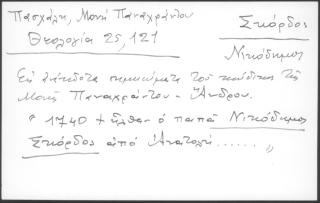 Πασχάλη, Μονή Παναχράντου
Θεολογία 25, 121
Σκόρδος
Νικόδημος
Εἰς ἀνέκδοτα σημειώματα τοῦ κώδικος τῆς
Μονῆς Παναχράντου - Ἄνδρου.
" 1740 + ἦλθεν ὁ παπᾶ Νικόδημος
Σκόρδος ἀπό Ἀνατολή...... "